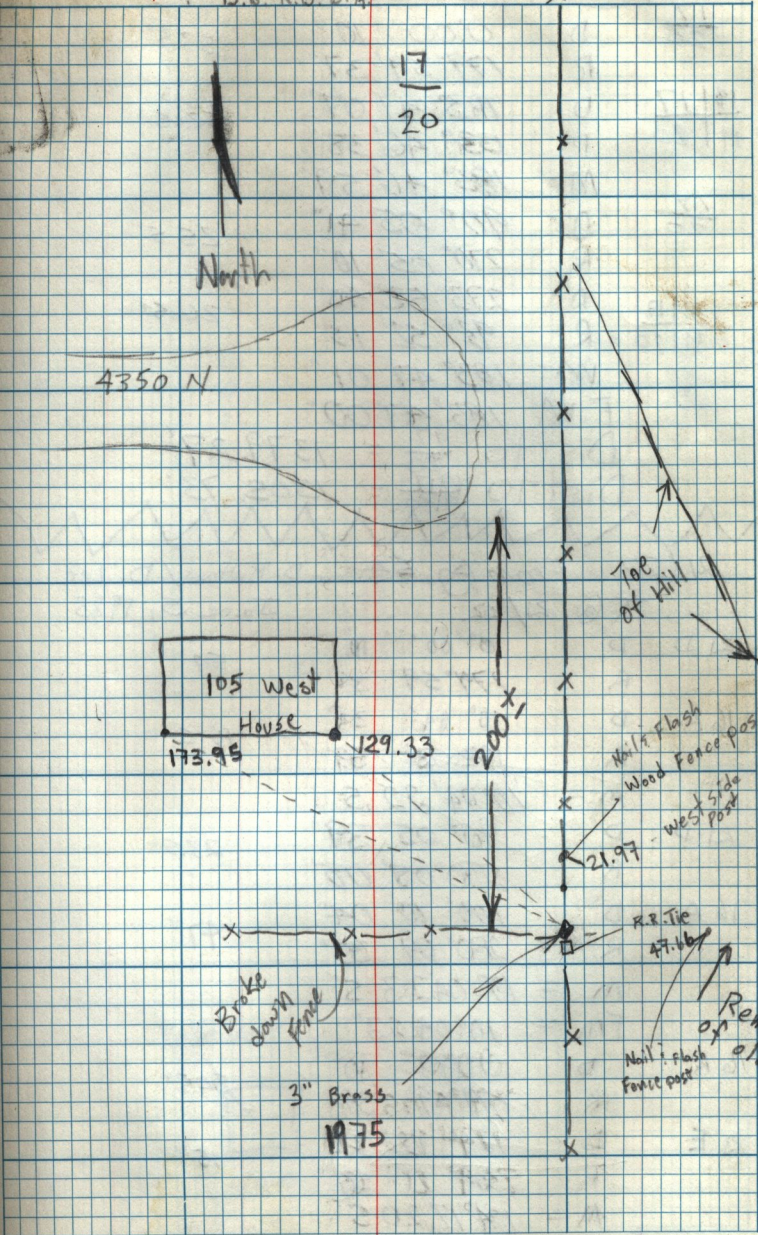 17
20
North
4350 N
Toe
of Hill
105 West
House
173.95
129.33
200±
Nail & Flash
Wood Fence pos
West side
post
21.97
R.R. Tie
47.66
Broke
down
Fence
Nail & Flash
Fence post
3" Brass
1975